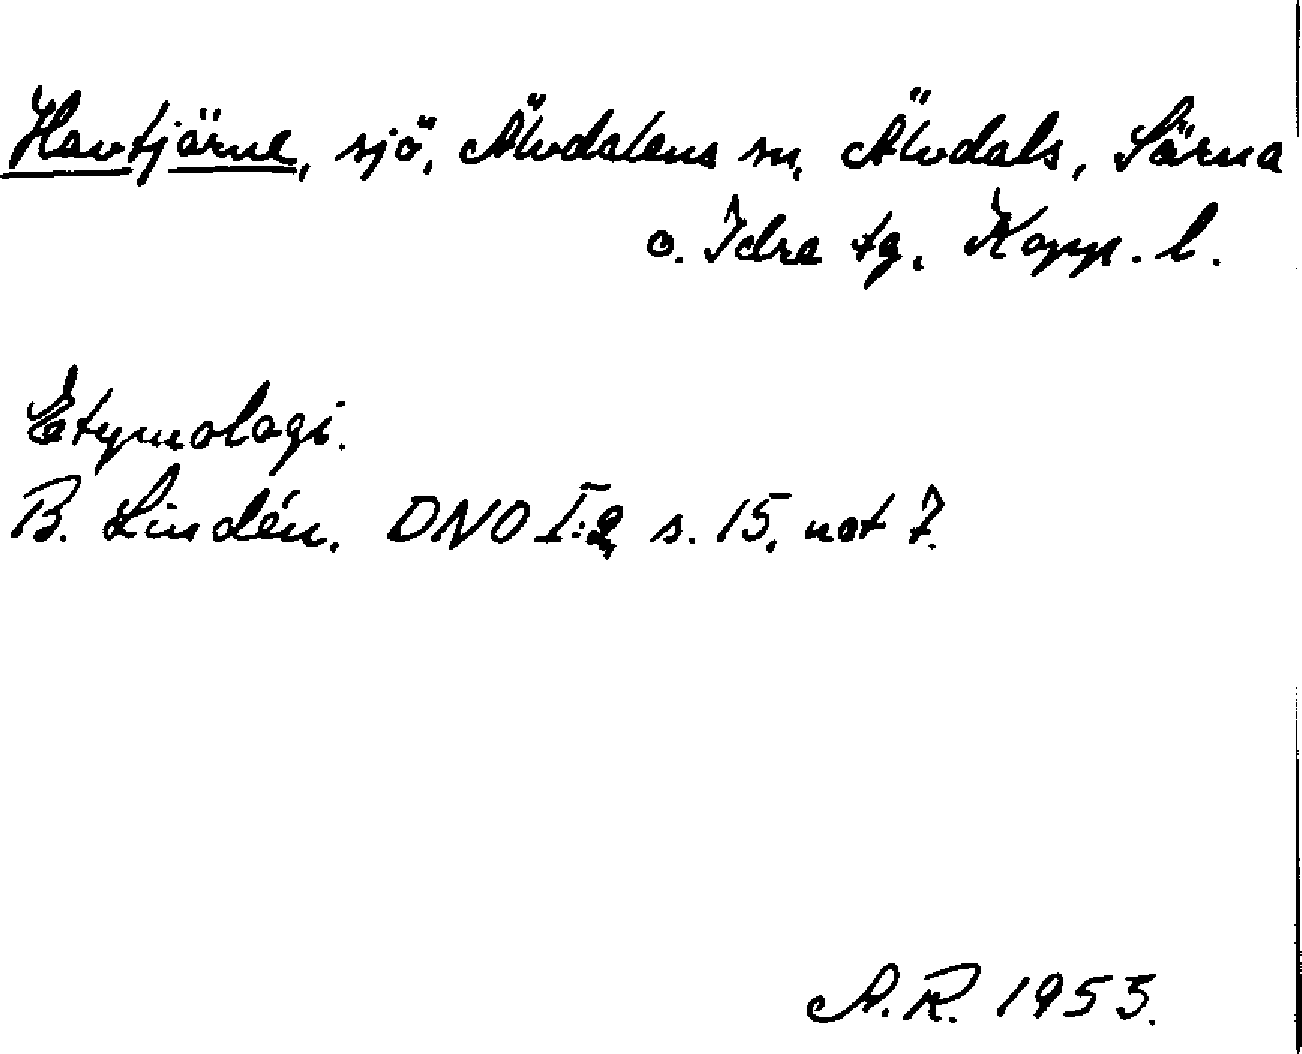 Havtjärne, sjö, Älvdalens sn, Älvdals, Särna
o. Idre tg, Kopp. l.
Etymologi.
B. Lindén, DNO I:2, s. 15, not 7.
A.R. 1953.